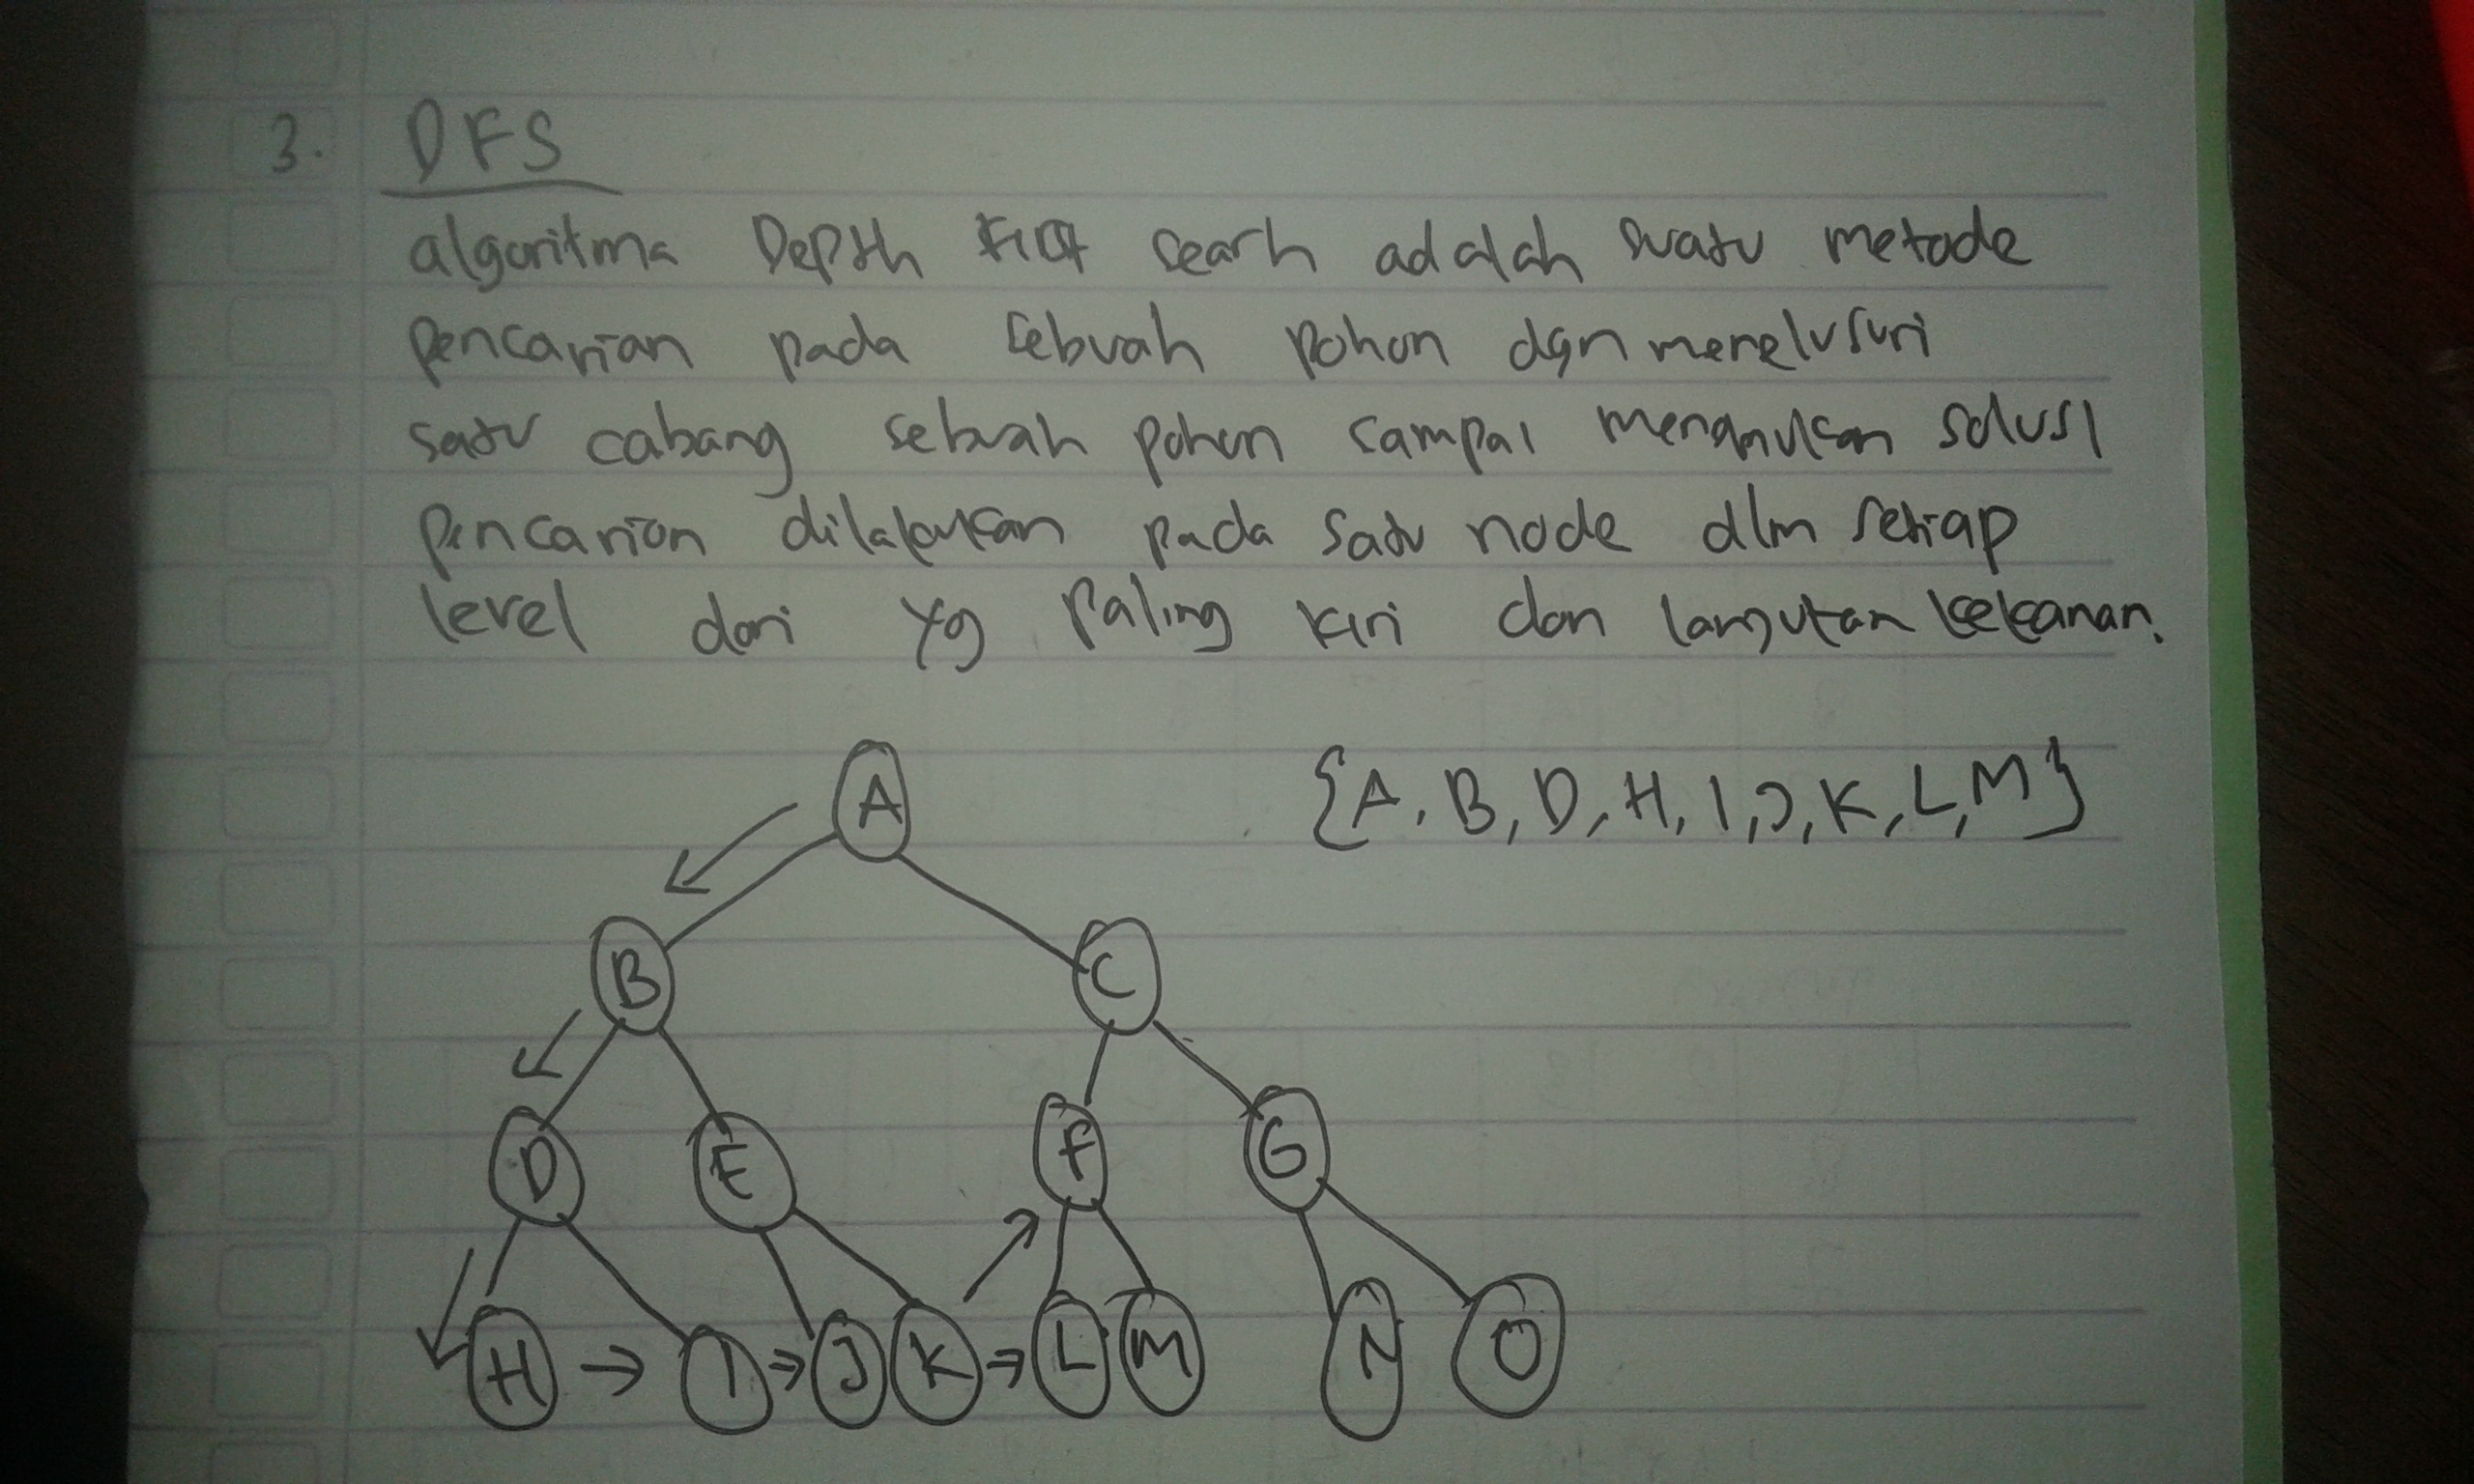 3. DFS
algoritma Depth First Searh adalah suatu metode
pencarian pada sebuah pohon dgn menelusuri
satu cabang sebuah pohon sampai solusi
pencarian dilakukan pada satu node dlm setiap
level dari yg paling kiri dan lanjutkan kekanan.
{A, B, D, H, I, J, K, L, M}
A
B C
D E F G
H I J K L M N O